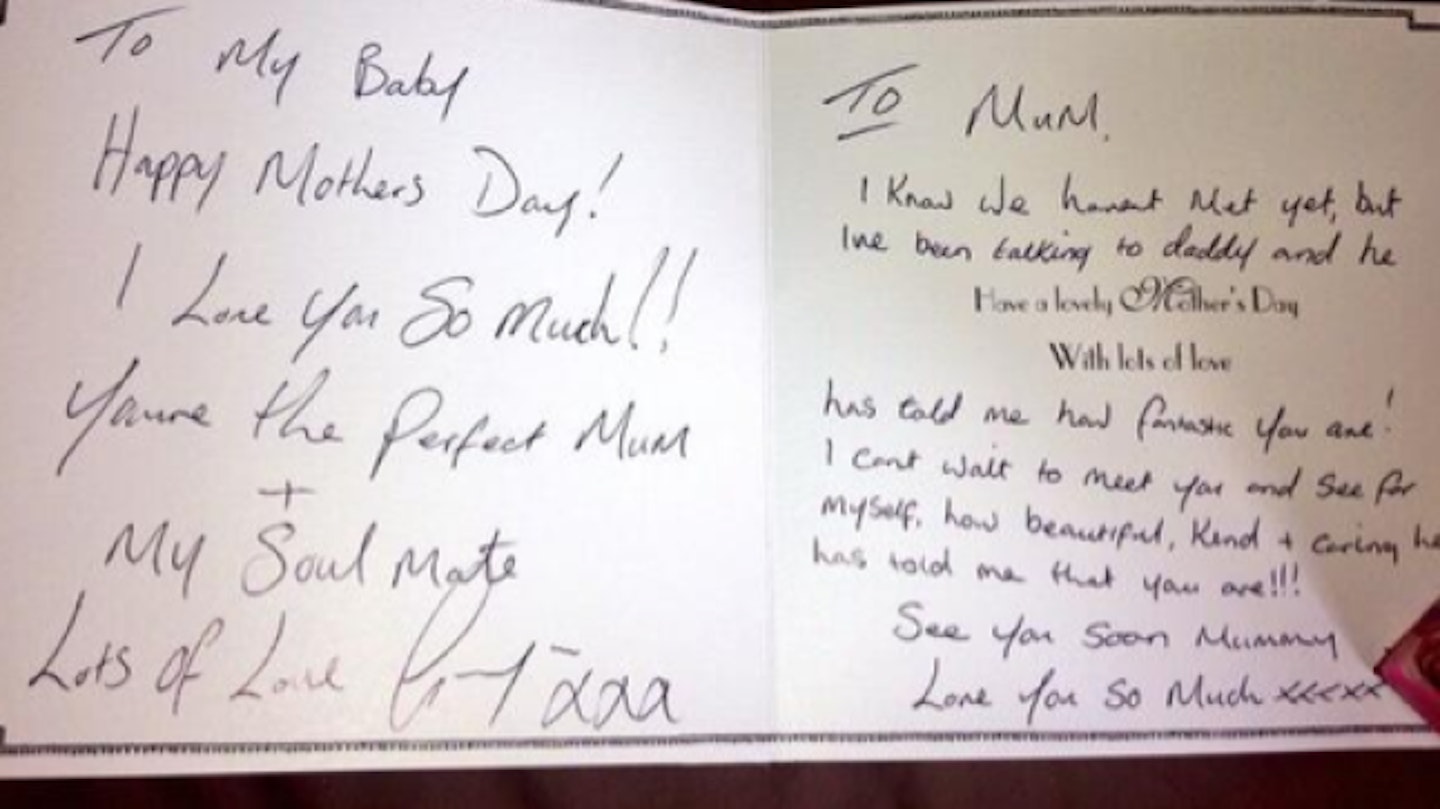 To My Baby
Happy Mothers Day!
I Love You So Much!!
Youre the Perfect Mum
+
My Soul Mate
Lots of Love xxx
To Mum.
I Know We havent Met yet, but
Ive been talking to daddy and he
Have a lovely Mother's Day
With lots of love
has told me how fantastic You are!
I cant wait to meet you and See for
myself, how beautiful, Kind + caring he
has told me that you are!!!
See You Soon Mummy
Love You So Much xxxxx